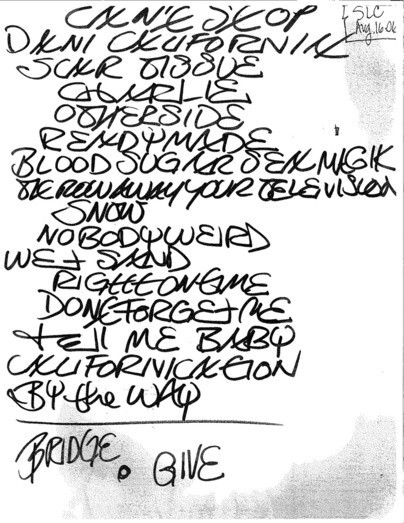 CAN'T STOP
SLC
Aug. 16 06
DANI CALIFORNIA
SCAR TISSUE
CHARLIE
OTHERSIDE
READYMADE
BLOOD SUGAR SEX MAGIK
THROW AWAY YOUR TELEVISION
SNOW
NOBODY WEIRD
WEt SAND
RIGHT ON TIME
DONT FORGEt ME
tEll ME BABY
CALIFORNICATION
BY the WAY
BRIDGE • GIVE